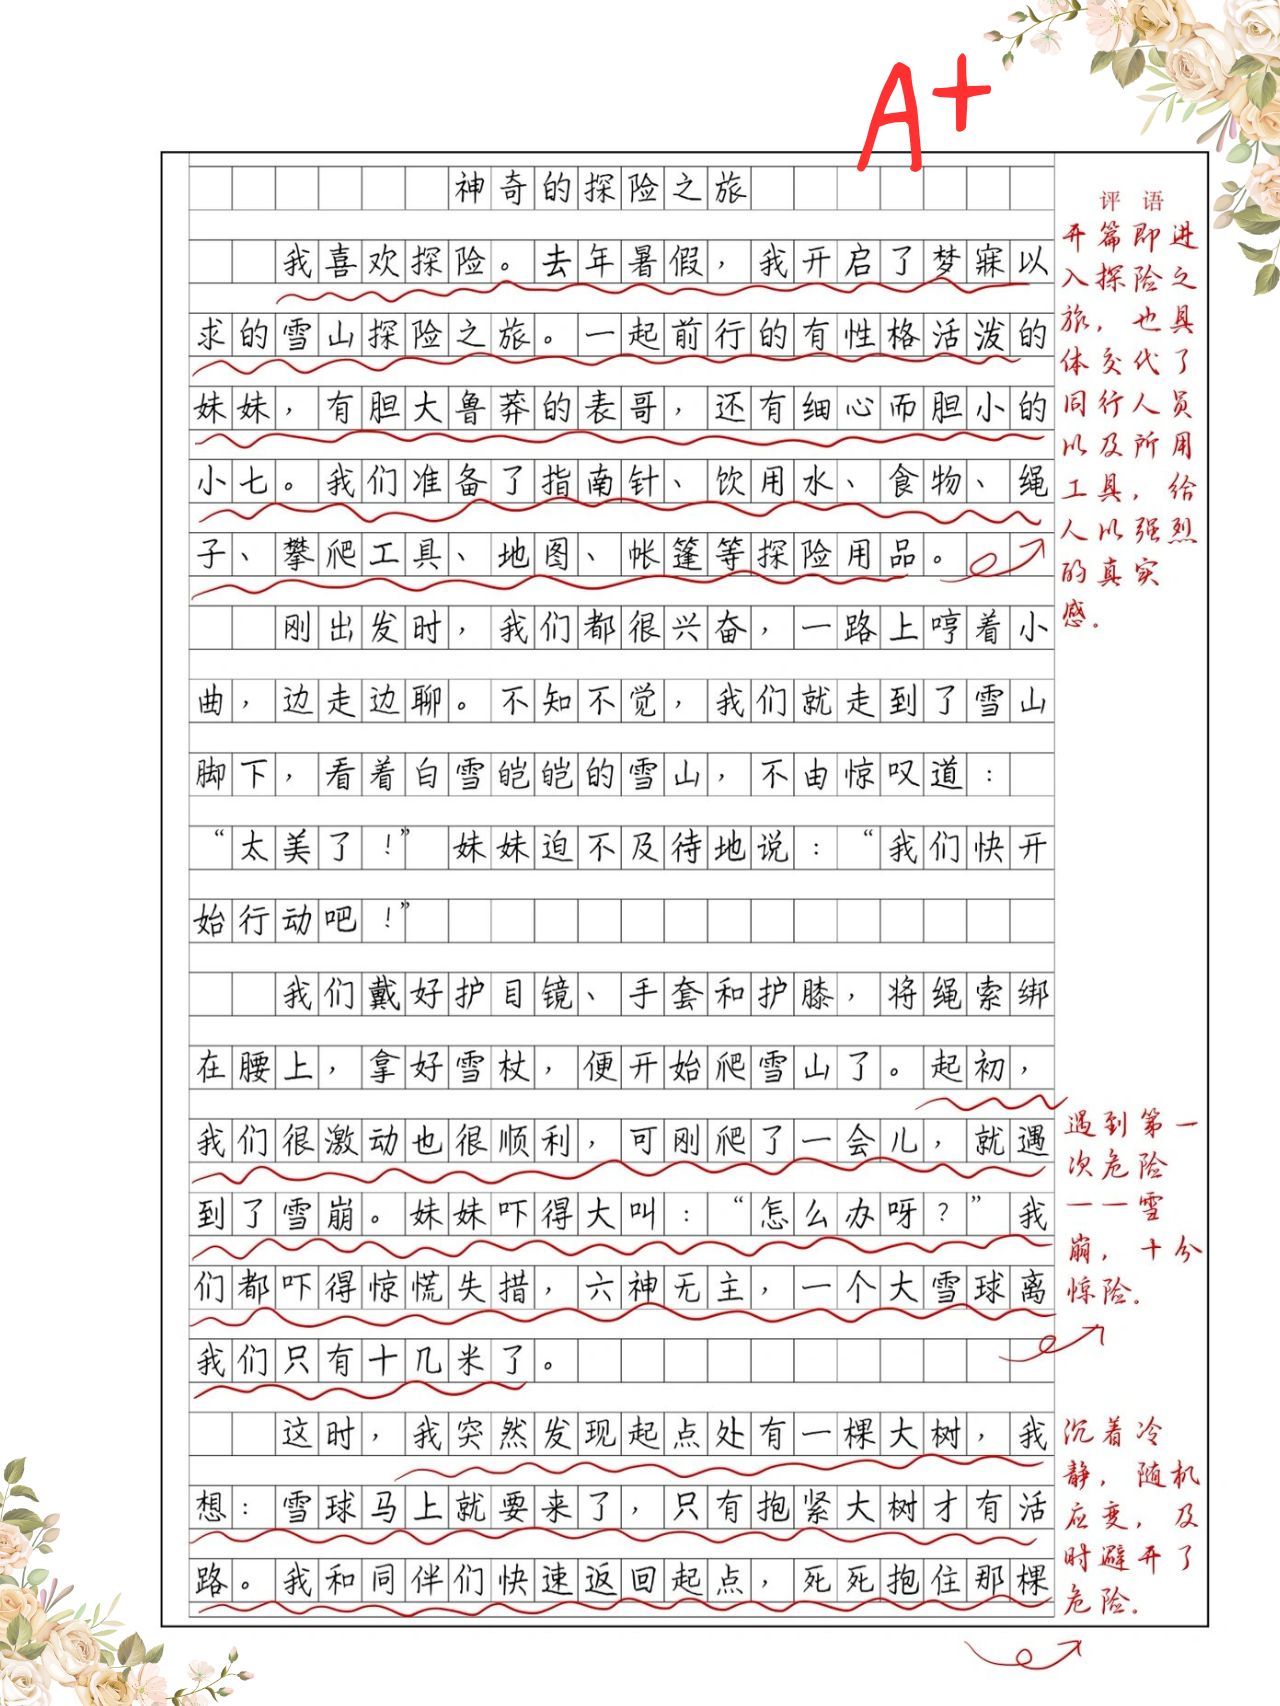 A+
神奇的探险之旅
我喜欢探险。去年暑假，我开启了梦寐以
求的雪山探险之旅。一起前行的有性格活泼的
妹妹，有胆大鲁莽的表哥，还有细心而胆小的
小七。我们准备了指南针、饮用水、食物、绳
子、攀爬工具、地图、帐篷等探险用品。
刚出发时，我们都很兴奋，一路上哼着小
曲，边走边聊。不知不觉，我们就走到了雪山
脚下，看着白雪皑皑的雪山，不由惊叹道：
“太美了！”妹妹迫不及待地说：“我们快开
始行动吧！”
我们戴好护目镜、手套和护膝，将绳索绑
在腰上，拿好雪杖，便开始爬雪山了。起初，
我们很激动也很顺利，可刚爬了一会儿，就遇
到了雪崩。妹妹吓得大叫：“怎么办呀？”我
们都吓得惊慌失措，六神无主，一个大雪球离
我们只有十几米了。
这时，我突然发现起点处有一棵大树，我
想：雪球马上就要来了，只有抱紧大树才有活
路。我和同伴们快速返回起点，死死抱住那棵
评语
开篇即进
入探险之
旅，也具
体交代了
同行人员
以及所用
工具，给
人以强烈
的真实
感。
遇到第一
次危险
一一雪
崩，十分
惊险。
沉着冷
静，随机
应变，及
时避开了
危险。